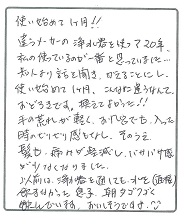 使い始めて1ヶ月!!
違うメーカーの浄水器を使って20年、
私の使っているのが一番と思っていました…
知人より話を聞き、かえることにし
使い始めて1ヶ月、こんなに違うなんて、
おどろきです。換えてよかった!!
手の荒れが軽く、お風呂でも、入った
時のピリピリ感もなし、そのうえ
髪も、痛みが軽減し、パサパサ感
が少なくなりました。
浄水器を通しても、水を
飲まなかった息子、朝ゴクゴクと
飲んでいます。おいしそうです。